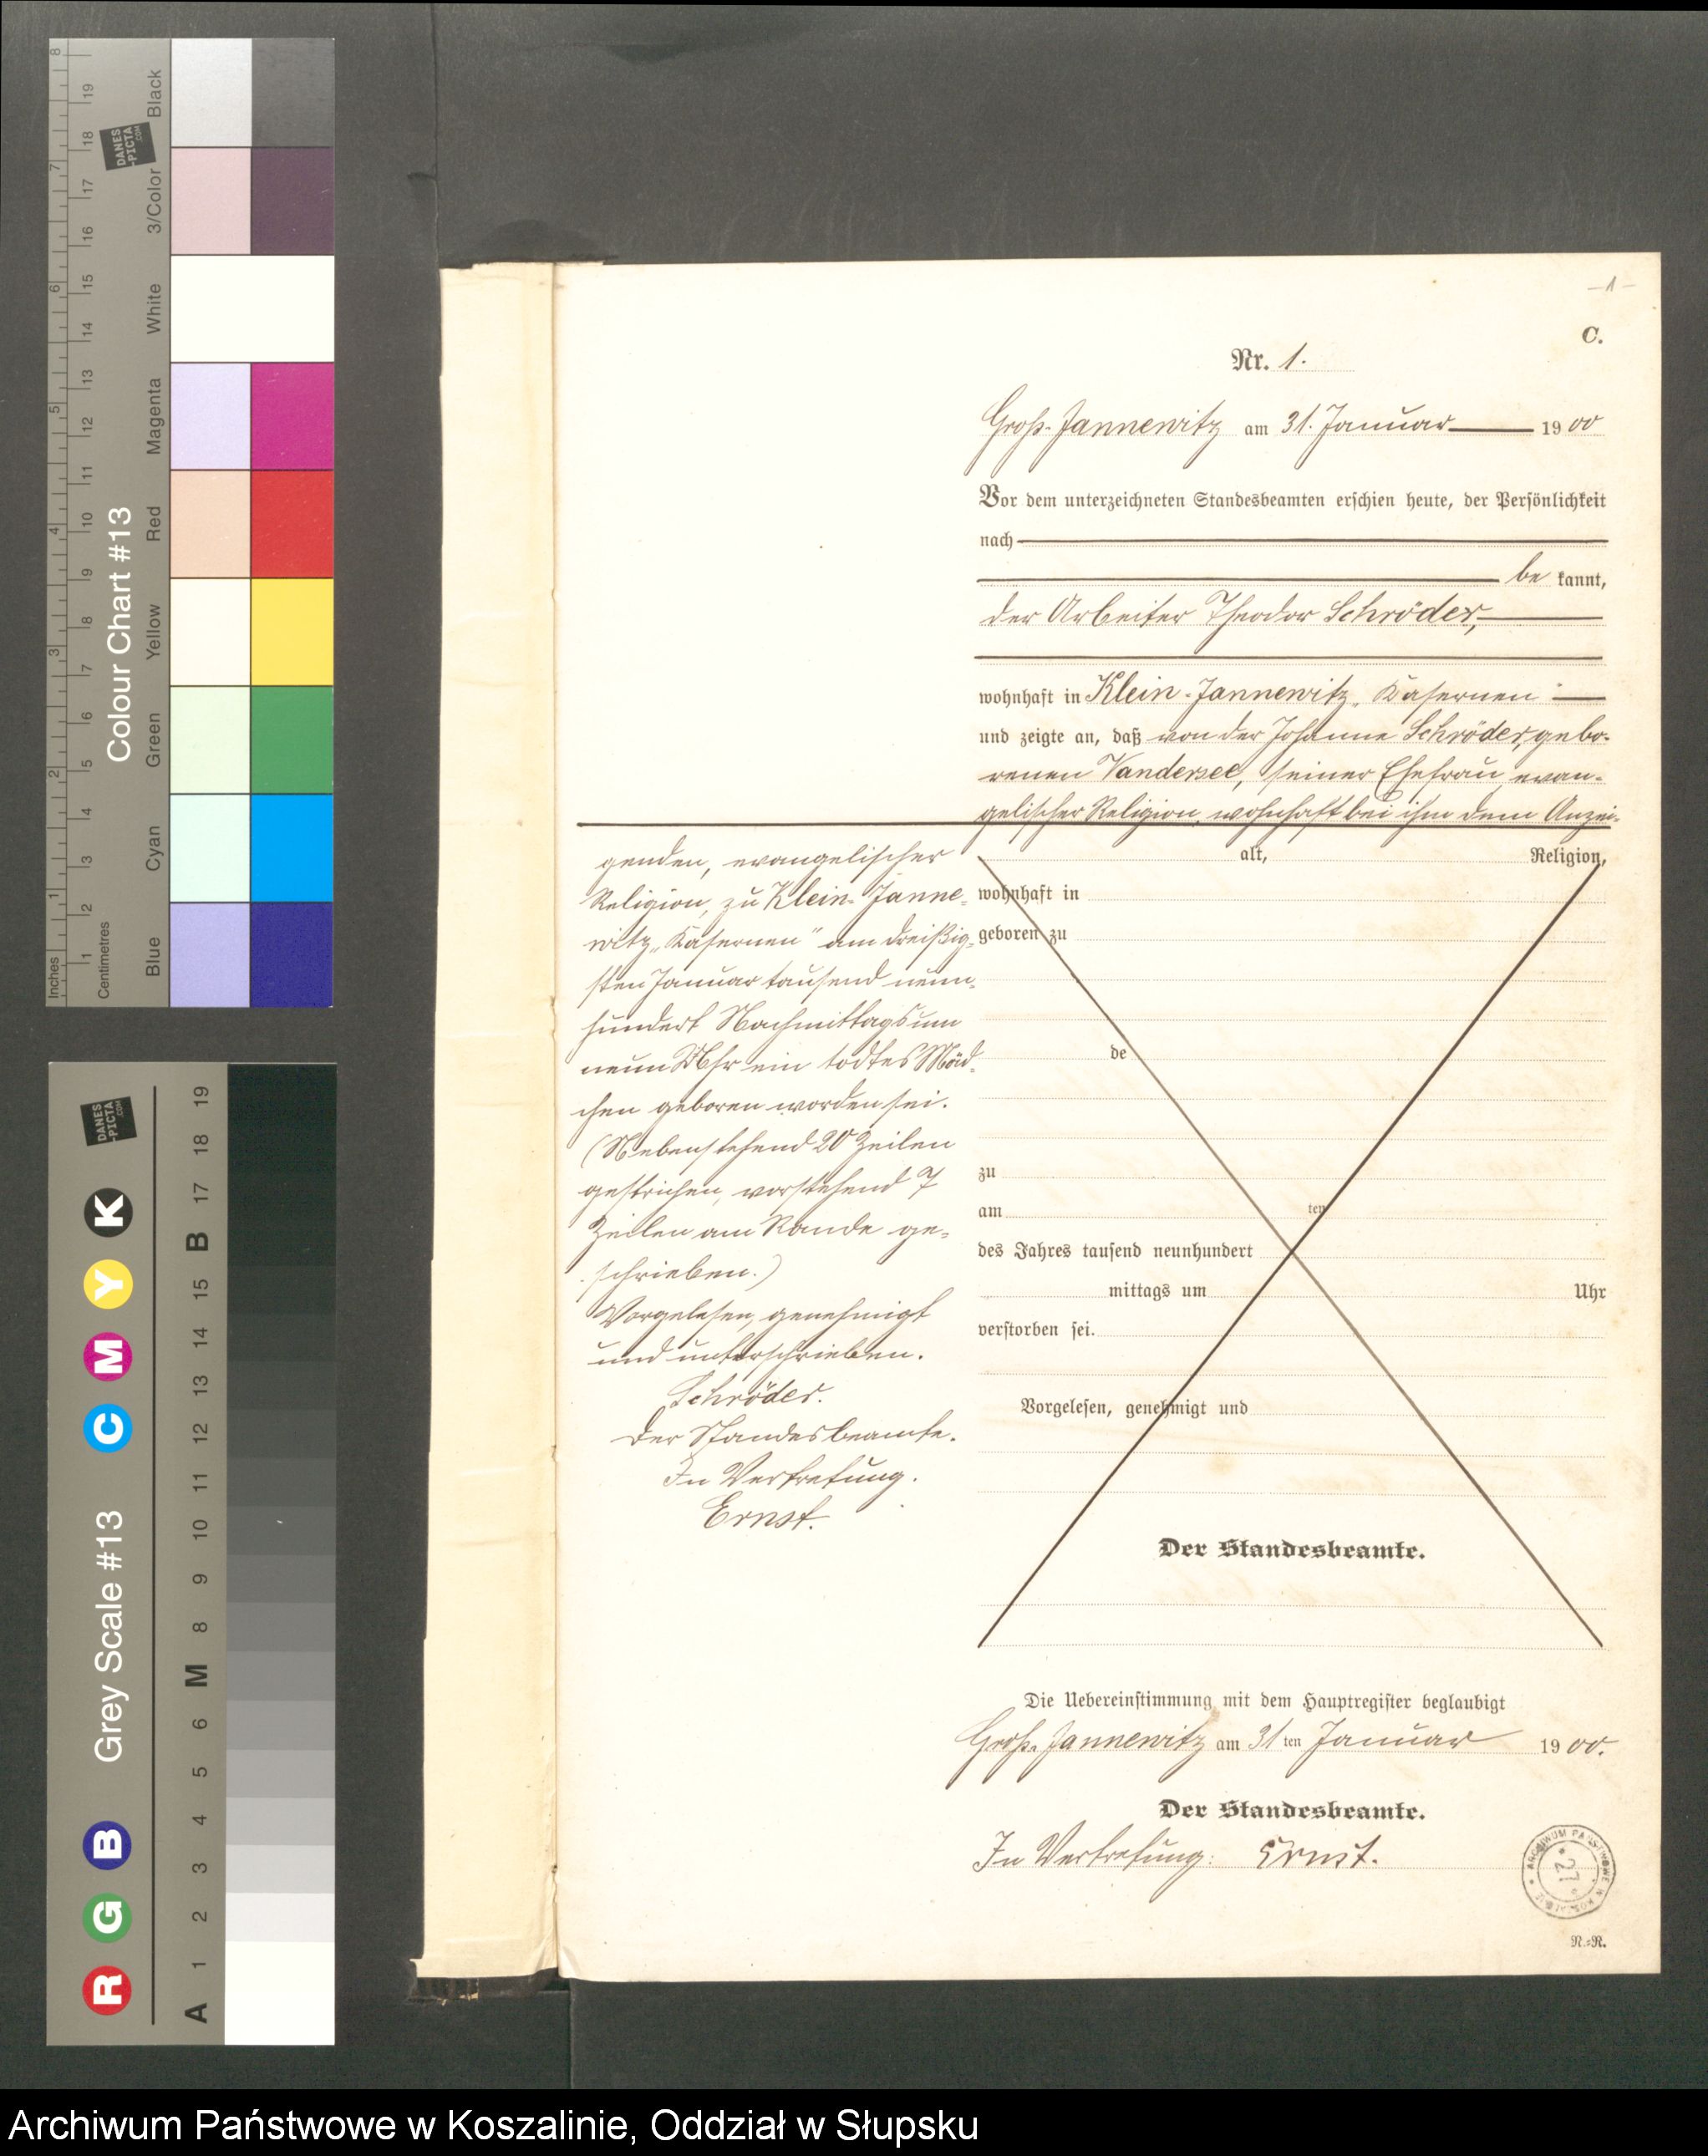 -1-
C.
Nr. 1.
Groß-Jannewitz am 31. Januar 1900
Vor dem unterzeichneten Standesbeamten erschien heute, der Persönlichkeit
nach
be kannt,
der Arbeiter Theodor Schröder,
wohnhaft in Klein-Jannewitz „Kasernen“
und zeigte an, daß von der Johanne Schröder, gebo-
renen Vandersee, seiner Ehefrau, evan-
gelischer Religion, wohnhaft bei ihm dem Anzei-
genden, evangelischer
Religion, zu Klein-Janne-
witz „Kasernen“ am dreißig-
sten Januar tausend neun-
hundert Nachmittags um
neun Uhr ein todtes Mäd-
chen geboren worden sei.
(Nebenstehend 20 Zeilen
gestrichen, vorstehend 7
Zeilen am Rande ge-
schrieben.)
Vorgelesen, genehmigt
und unterschrieben.
Schröder.
Der Standesbeamte.
In Vertretung.
Ernst.
alt, Religion,
wohnhaft in
geboren zu
de
zu
am ten
des Jahres tausend neunhundert
mittags um Uhr
verstorben sei.
Vorgelesen, genehmigt und
Der Standesbeamte.
Die Uebereinstimmung mit dem Hauptregister beglaubigt
Groß-Jannewitz am 31 ten Januar 1900.
Der Standesbeamte.
In Vertretung: Ernst.
ARCHIWUM PAŃSTWOWE W KOSZALINIE
R.=R.
Colour Chart #13
Inches 1 2 3 4 5 6 7 8
Centimetres 1 2 3 4 5 6 7 8 9 10 11 12 13 14 15 16 17 18 19
Blue Cyan Green Yellow Red Magenta White 3/Color Black
DANES
-PICTA
.COM
Grey Scale #13
R G B C M Y K
A 1 2 3 4 5 6 M 8 9 10 11 12 13 14 15 B 17 18 19
DANES
-PICTA
.COM
Archiwum Państwowe w Koszalinie, Oddział w Słupsku